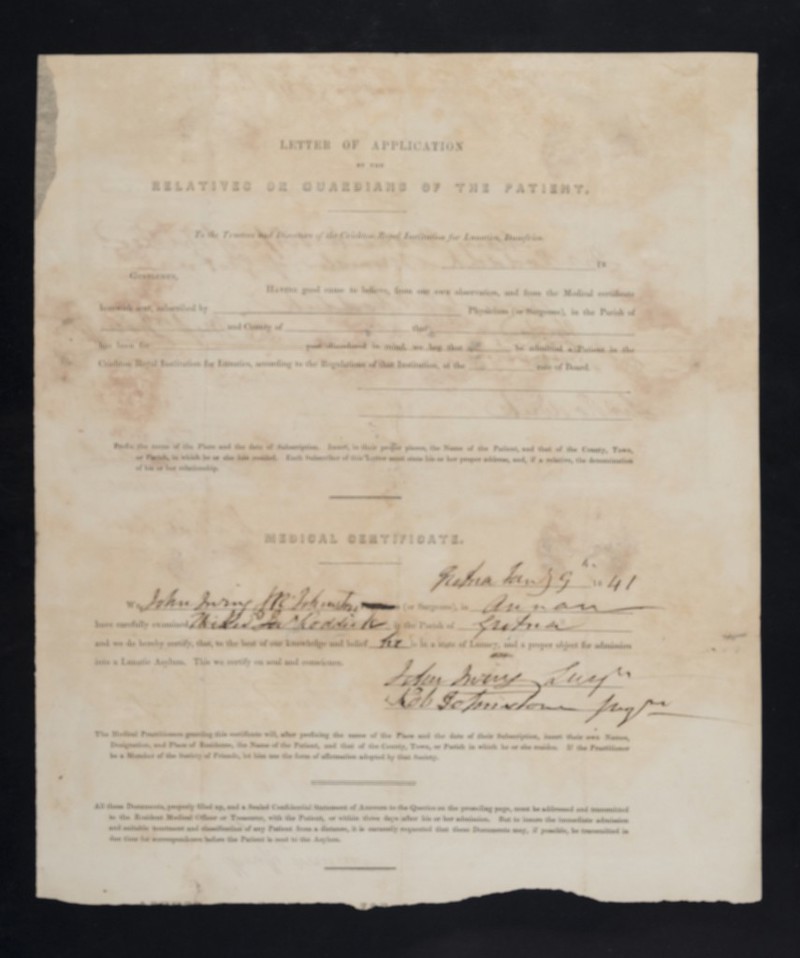 LETTER OF APPLICATION
BY THE
RELATIVES OR GUARDIANS OF THE PATIENT.
To the Trustees and Directors of the Crichton Royal Institution for Lunatics, Dumfries.
18
GENTLEMEN,
HAVING good cause to believe, from our own observation, and from the Medical certificate
herewith sent, subscribed by Physician (or Surgeon), in the Parish of
and County of that
has been for past disordered in mind, we beg that may be admitted a Patient in the
Crichton Royal Institution for Lunatics, according to the Regulations of that Institution, at the rate of Board.
Prefix the name of the Place and the date of Subscription. Insert, in their proper places, the Name of the Patient, and that of the County, Town,
or Parish, in which he or she has resided. Each Subscriber of this Letter must state his or her proper address, and, if a relative, the denomination
of his or her relationship.
MEDICAL CERTIFICATE.
Gretna Jany 9th 41
We, John Irving & R Johnston (or Surgeons), in Annan
have carefully examined in the Parish of Gretna
and we do hereby certify, that, to the best of our knowledge and belief he is in a state of Lunacy, and a proper object for admission
into a Lunatic Asylum. This we certify on soul and conscience.
John Irving Surgn
Rob Johnstone Surgn
The Medical Practitioners granting this certificate will, after prefixing the name of the Place and the date of their Subscription, insert their own Names,
Designation, and Place of Residence, the Name of the Patient, and that of the County, Town, or Parish in which he or she resides. If the Practitioner
be a Member of the Society of Friends, let him use the form of affirmation adopted by that Society.
All these Documents, properly filled up, and a Sealed Confidential Statement of Answers to the Queries on the preceding page, must be addressed and transmitted
to the Resident Medical Officer or Treasurer, with the Patient, or within three days after his or her admission. But to insure the immediate admission
and suitable treatment and classification of any Patient from a distance, it is earnestly requested that these Documents may, if possible, be transmitted in
due time for correspondence before the Patient is sent to the Asylum.